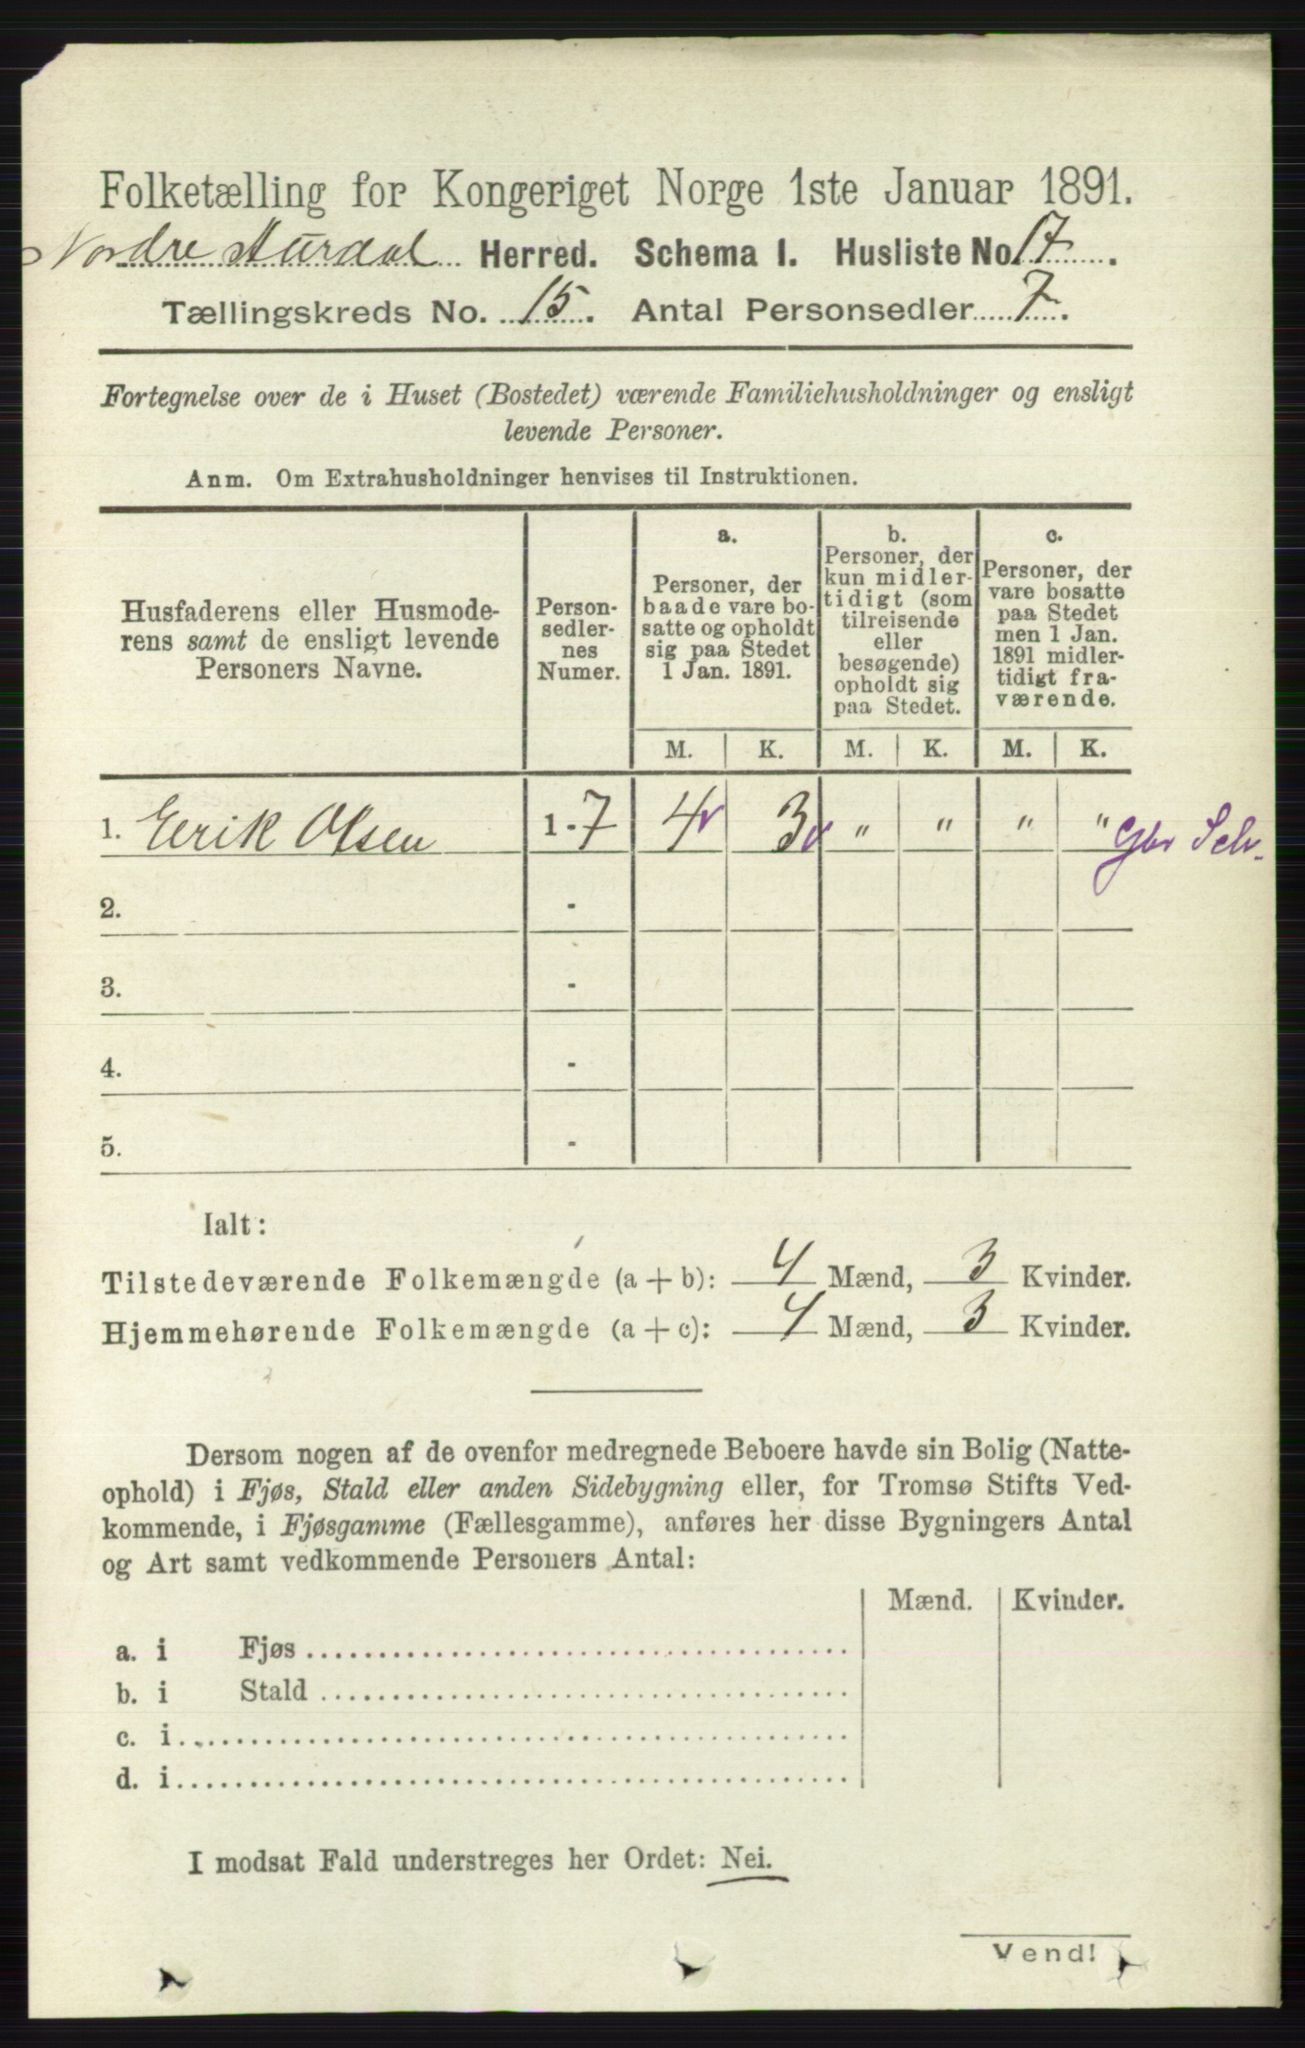 Folketælling for Kongeriget Norge 1ste Januar 1891.
Nordre Aurdal Herred. Schema I. Husliste No. 17.
Tællingskreds No. 15. Antal Personsedler 7.
Fortegnelse over de i Huset (Bostedet) værende Familiehusholdninger og ensligt
levende Personer.
Anm. Om Extrahusholdninger henvises til Instruktionen.
Husfaderens eller Husmode-
rens samt de ensligt levende
Personers Navne.
Person-
sedler-
nes
Numer.
a.
Personer, der
baade vare bo-
satte og opholdt
sig paa Stedet
1 Jan. 1891.
b.
Personer, der
kun midler-
tidigt (som
tilreisende
eller
besøgende)
opholdt sig
paa Stedet.
c.
Personer, der
vare bosatte
paa Stedet
men 1 Jan.
1891 midler-
tidigt fra-
værende.
M. K. M. K. M. K.
1. Eerik Olsen 1-7 4 3 " " " " Gbr Selv.
2. -
3. -
4. -
5. -
Ialt:
Tilstedeværende Folkemængde (a + b): 4 Mænd, 3 Kvinder.
Hjemmehørende Folkemængde (a + c): 4 Mænd, 3 Kvinder.
Dersom nogen af de ovenfor medregnede Beboere havde sin Bolig (Natte-
ophold) i Fjøs, Stald eller anden Sidebygning eller, for Tromsø Stifts Ved-
kommende, i Fjøsgamme (Fællesgamme), anføres her disse Bygningers Antal
og Art samt vedkommende Personers Antal:
Mænd. Kvinder.
a. i Fjøs
b. i Stald
c. i
d. i
I modsat Fald understreges her Ordet: Nei.
Vend!